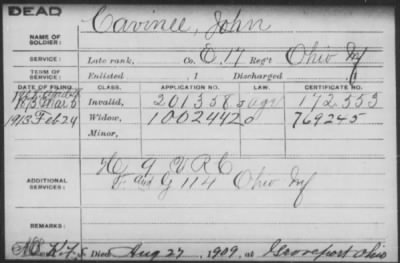 DEAD
Cavinee, John
NAME OF SOLDIER:
SERVICE: Late rank, Co. E, 17 Reg't Ohio Inf
TERM OF SERVICE: Enlisted , 1 Discharged , 1
DATE OF FILING. CLASS. APPLICATION NO. LAW. CERTIFICATE NO.
1875 Mar 5 Invalid, 201358 172.553
1913 Feb 24 Widow, 1002442 769245
Minor,
H 9 V.R.C
ADDITIONAL SERVICES: F and G 114 Ohio Inf
REMARKS:
Died Aug 27, 1909, at Groveport Ohio